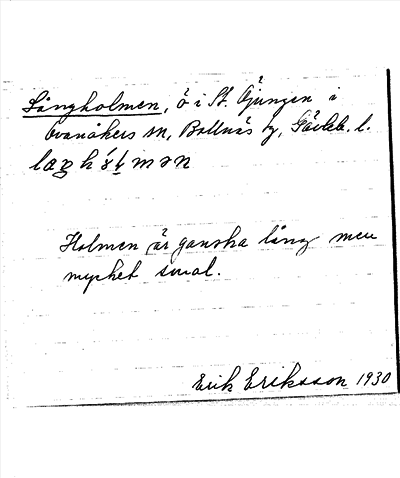 Långholmen, ö i St. Öjungen i
Ovanåkers sn, Bollnäs tg, Gävleb. l.
Holmen är ganska lång men
mycket smal.
Erik Eriksson 1930